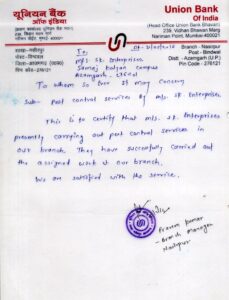 यूनियन बैंक
ऑफ इंडिया
Union Bank
Of India
(Head Office Union Bank Bhavan)
239, Vidhan Bhawan Marg
Nariman Point, Mumbai-400021
Branch - Nasirpur
Post - Bindwal
Distt. - Azamgarh (U.P.)
Pin Code - 276121
To,
M/s. SK. Enterprises
Samaj kalyan campus
Azamgarh,
To whom So Ever It may Concern
Sub:- Pest control services by M/s. SK. Enterprises
This is to certify that M/s. SK. Enterprises
presently carrying out pest control services in
our branch. They have successfully carried out
the assigned work at our branch.
We are satisfied with the service.
Kumar
Branch Manager
Nasirpur